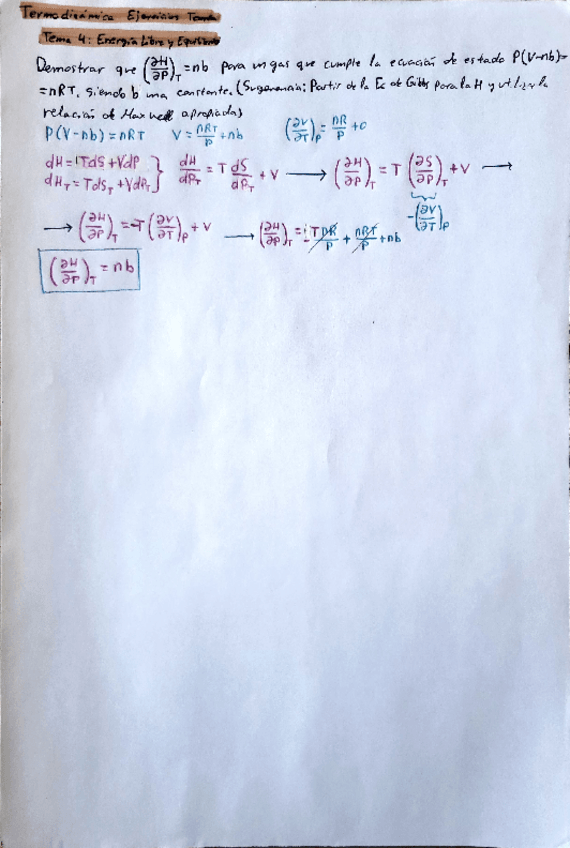 Termodinámica Ejercicios Tema
Tema 4: Energía Libre y Equilibrio
Demostrar que (∂H/∂P)_T = nb para un gas que cumple la ecuación de estado P(V-nb)=
= nRT, siendo b una constante. (Sugerencia: Partir de la Ec de Gibbs para la H y utilizar la
relación de Maxwell apropiada)
P(V-nb)=nRT V = nRT/P + nb (∂V/∂T)_P = nR/P + 0
dH = TdS + VdP
dH_T = TdS_T + VdP_T } dH/dP_T = T dS/dP_T + V → (∂H/∂P)_T = T (∂S/∂P)_T + V →
-(∂V/∂T)_P
→ (∂H/∂P)_T = -T(∂V/∂T)_P + V → (∂H/∂P)_T = -T nR/P + nRT/P + nb
(∂H/∂P)_T = nb